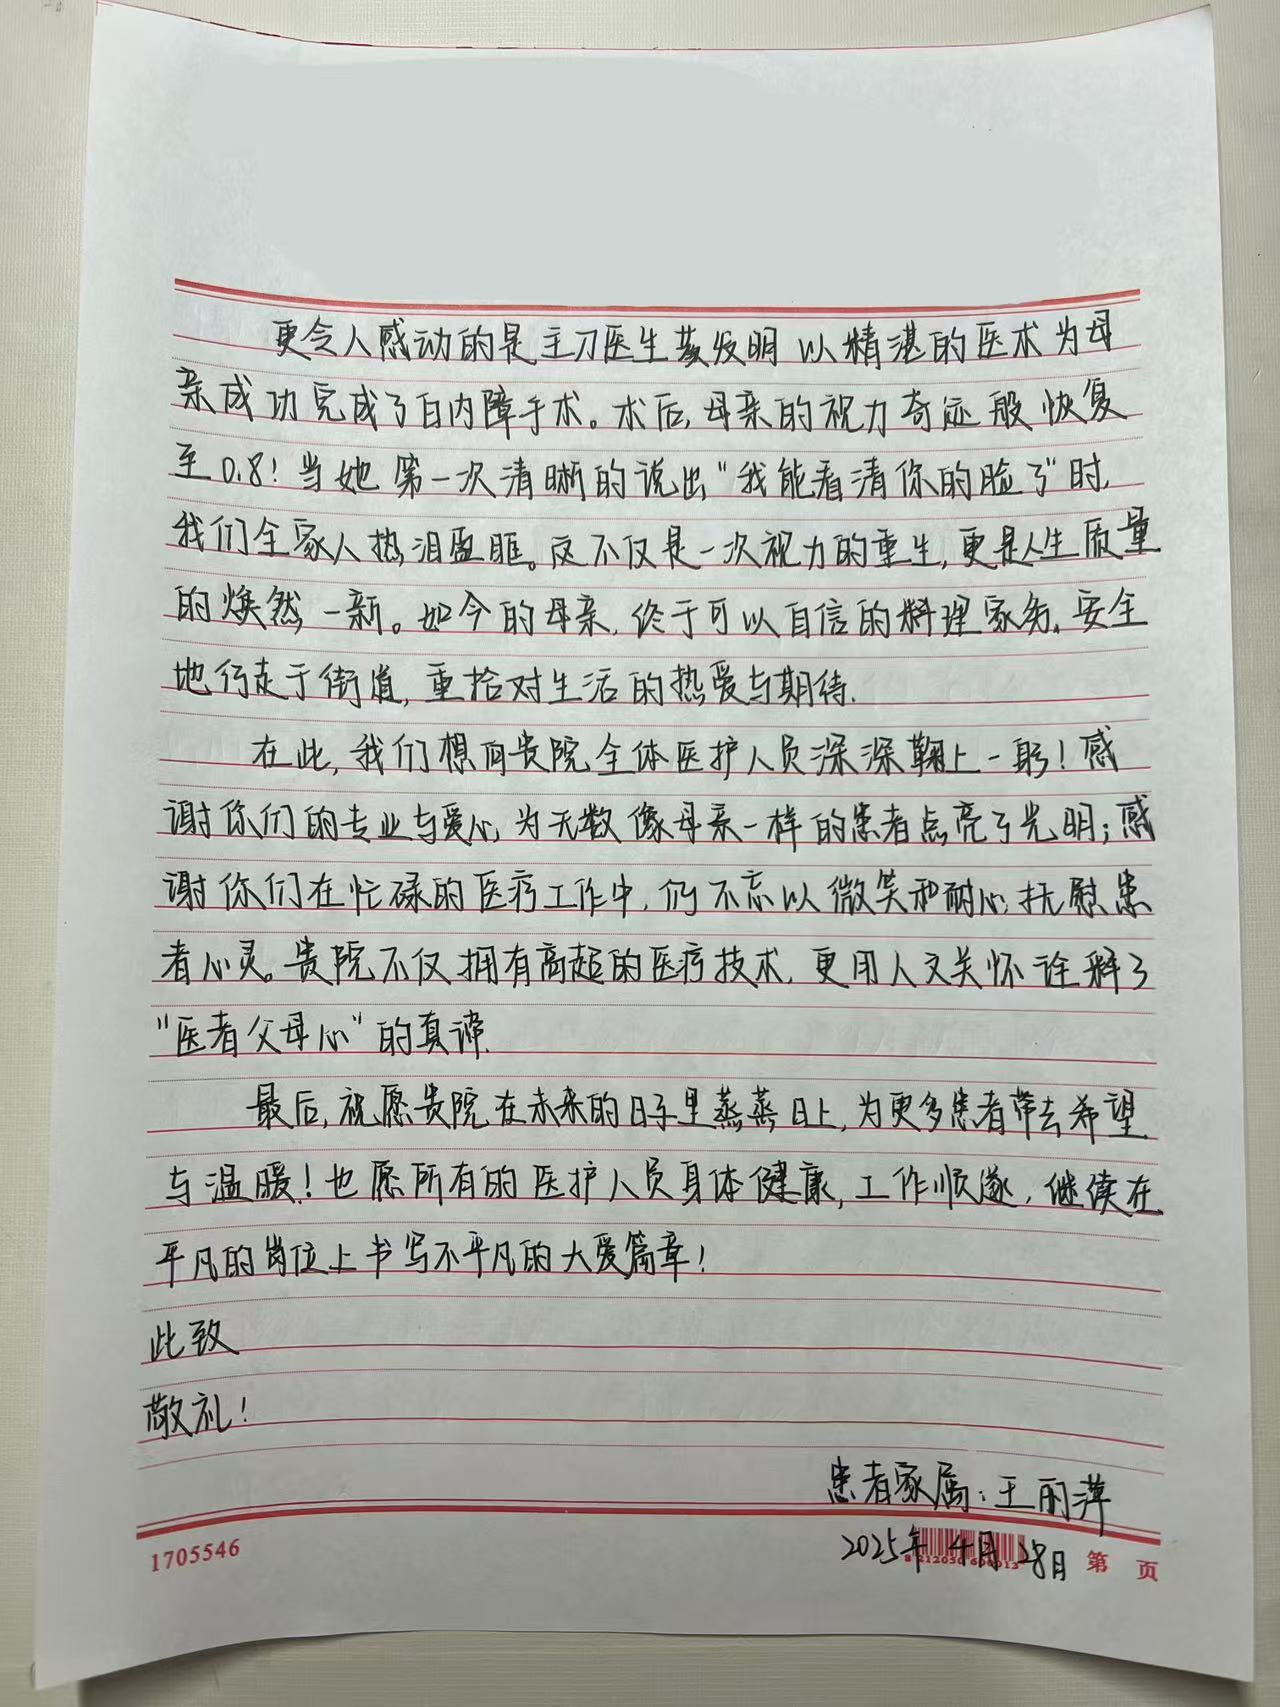 更令人感动的是主刀医生蒋发明以精湛的医术为母
亲成功完成了白内障手术。术后,母亲的视力奇迹般恢复
至0.8!当她第一次清晰的说出“我能看清你的脸了”时,
我们全家人热泪盈眶。这不仅是一次视力的重生,更是人生质量
的焕然一新。如今的母亲,终于可以自信的料理家务,安全
地行走于街道,重拾对生活的热爱与期待.
在此,我们想向贵院全体医护人员深深鞠上一躬!感
谢你们的专业与爱心,为无数像母亲一样的患者点亮了光明;感
谢你们在忙碌的医疗工作中,仍不忘以微笑和耐心抚慰患
者心灵。贵院不仅拥有高超的医疗技术,更用人文关怀诠释了
“医者父母心”的真谛.
最后,祝愿贵院在未来的日子里蒸蒸日上,为更多患者带去希望
与温暖!也愿所有的医护人员身体健康,工作顺遂,继续在
平凡的岗位上书写不平凡的大爱篇章!
此致
敬礼!
患者家属:王丽萍
2025年4月28日
1705546
第 页